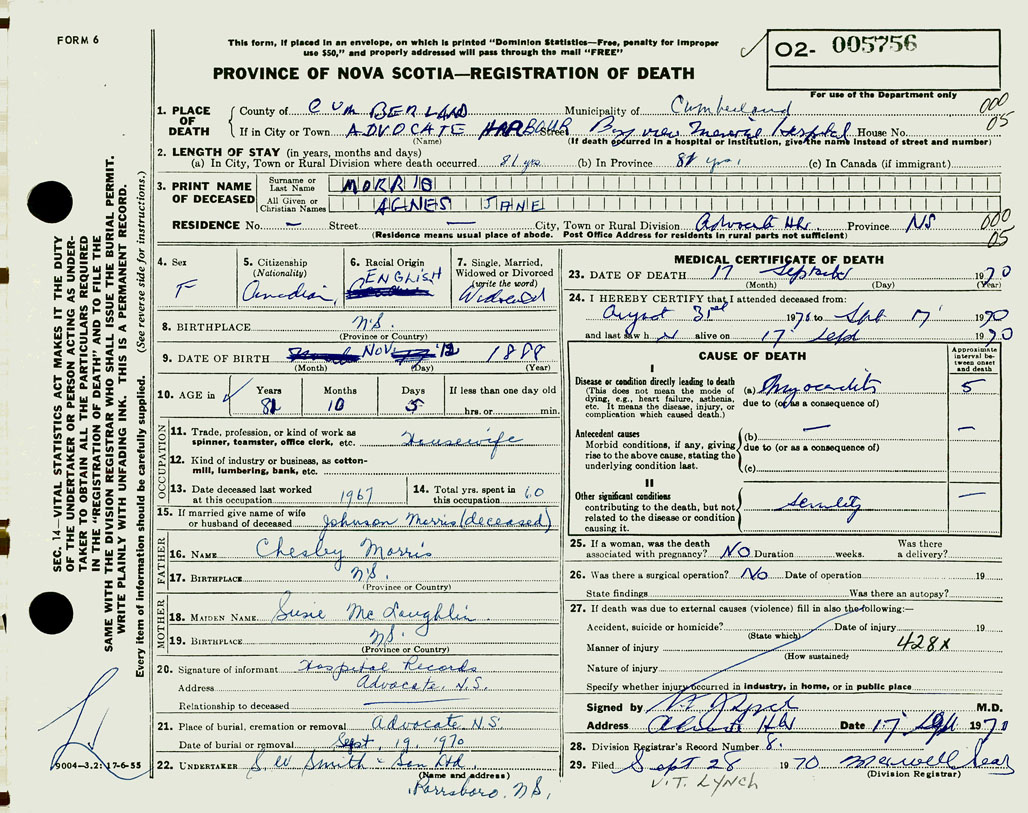 FORM 6
This form, if placed in an envelope, on which is printed "Dominion Statistics—Free, penalty for improper
use $50," and properly addressed will pass through the mail "FREE"
PROVINCE OF NOVA SCOTIA—REGISTRATION OF DEATH
O2- 005756
For use of the Department only
1. PLACE OF DEATH County of CUMBERLAND Municipality of Cumberland 000
If in City or Town ADVOCATE HARBOUR Street Bay view Memorial Hospital House No. 05
(Name) (If death occurred in a hospital or institution, give the name instead of street and number)
2. LENGTH OF STAY (in years, months and days)
(a) In City, Town or Rural Division where death occurred 81 yrs (b) In Province 81 yrs. (c) In Canada (if immigrant)
3. PRINT NAME OF DECEASED Surname or Last Name MORRIS
All Given or Christian Names AGNES JANE
RESIDENCE No. — Street — City, Town or Rural Division Advocate Hbr. Province NS 000
(Residence means usual place of abode. Post Office Address for residents in rural parts not sufficient) 05
4. Sex F
5. Citizenship (Nationality) Canadian
6. Racial Origin ENGLISH
7. Single, Married, Widowed or Divorced (write the word) Widowed
8. BIRTHPLACE N.S.
(Province or Country)
9. DATE OF BIRTH NOV. 12 1888
(Month) (Day) (Year)
10. AGE in Years 81 Months 10 Days 5 If less than one day old hrs. or min.
OCCUPATION
11. Trade, profession, or kind of work as spinner, teamster, office clerk, etc. Housewife
12. Kind of industry or business, as cotton-mill, lumbering, bank, etc.
13. Date deceased last worked at this occupation 1967
14. Total yrs. spent in this occupation 60
15. If married give name of wife or husband of deceased Johnson Morris (deceased)
FATHER
16. NAME Chesley Morris
17. BIRTHPLACE N.S.
(Province or Country)
MOTHER
18. MAIDEN NAME Susie McLaughlin
19. BIRTHPLACE N.S.
(Province or Country)
20. Signature of informant Hospital Records
Address Advocate, N.S.
Relationship to deceased
21. Place of burial, cremation or removal Advocate N.S.
Date of burial or removal Sept. 19, 1970
22. UNDERTAKER S.W. Smith & Son Ltd.
(Name and address)
Parrsboro, N.S.
MEDICAL CERTIFICATE OF DEATH
23. DATE OF DEATH 17 September 1970
(Month) (Day) (Year)
24. I HEREBY CERTIFY that I attended deceased from:
August 31st 1970 to Sept 17 1970
and last saw h alive on 17 Sept 1970
CAUSE OF DEATH
Approximate interval between onset and death
I
Disease or condition directly leading to death (a) Myocarditis 5
(This does not mean the mode of dying, e.g., heart failure, asthenia, etc. It means the disease, injury, or complication which caused death.)
due to (or as a consequence of)
Antecedent causes (b) — —
Morbid conditions, if any, giving rise to the above cause, stating the underlying condition last.
due to (or as a consequence of)
(c)
II
Other significant conditions contributing to the death, but not related to the disease or condition causing it. senility —
25. If a woman, was the death associated with pregnancy? NO Duration weeks. Was there a delivery?
26. Was there a surgical operation? NO Date of operation 19
State findings Was there an autopsy?
27. If death was due to external causes (violence) fill in also the following:—
Accident, suicide or homicide? Date of injury 19
(State which)
Manner of injury 428X
(How sustained)
Nature of injury
Specify whether injury occurred in industry, in home, or in public place
Signed by M.D.
Address Advocate Hbr Date 17 Sept 1970
28. Division Registrar's Record Number 8.
29. Filed Sept 28 1970
(Division Registrar)
V.T. LYNCH
SEC. 14—VITAL STATISTICS ACT MAKES IT THE DUTY
OF THE UNDERTAKER OR PERSON ACTING AS UNDER-
TAKER TO OBTAIN ALL THE PARTICULARS REQUIRED
IN THE "REGISTRATION OF DEATH" AND TO FILE THE
SAME WITH THE DIVISION REGISTRAR WHO SHALL ISSUE THE BURIAL PERMIT.
WRITE PLAINLY WITH UNFADING INK. THIS IS A PERMANENT RECORD.
Every item of information should be carefully supplied. (See reverse side for instructions.)
9004—3.2: 17-6-55